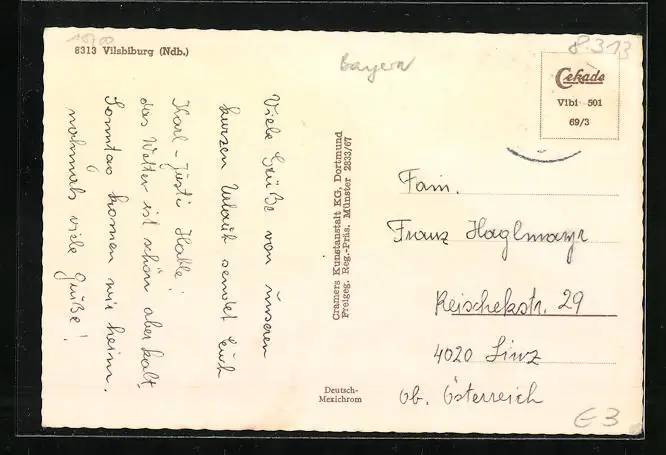 8313 Vilsbiburg (Ndb.)
Bayern
8.313
Cekade
Vibi 501
69/3
Viele Grüße von unseren
kurzen Urlaub sendet Euch
Karl - Justi
das Wetter ist schön aber kalt,
Sonntag kommen wir heim.
nochmals viele Grüße!
Cramers Kunstanstalt KG, Dortmund
Freigeg. Reg.-Präs. Münster 2833/67
Deutsch-
Mexichrom
Fam.
Franz Haglmayr
Reischekstr. 29
4020 Linz
Ob. Österreich
€3